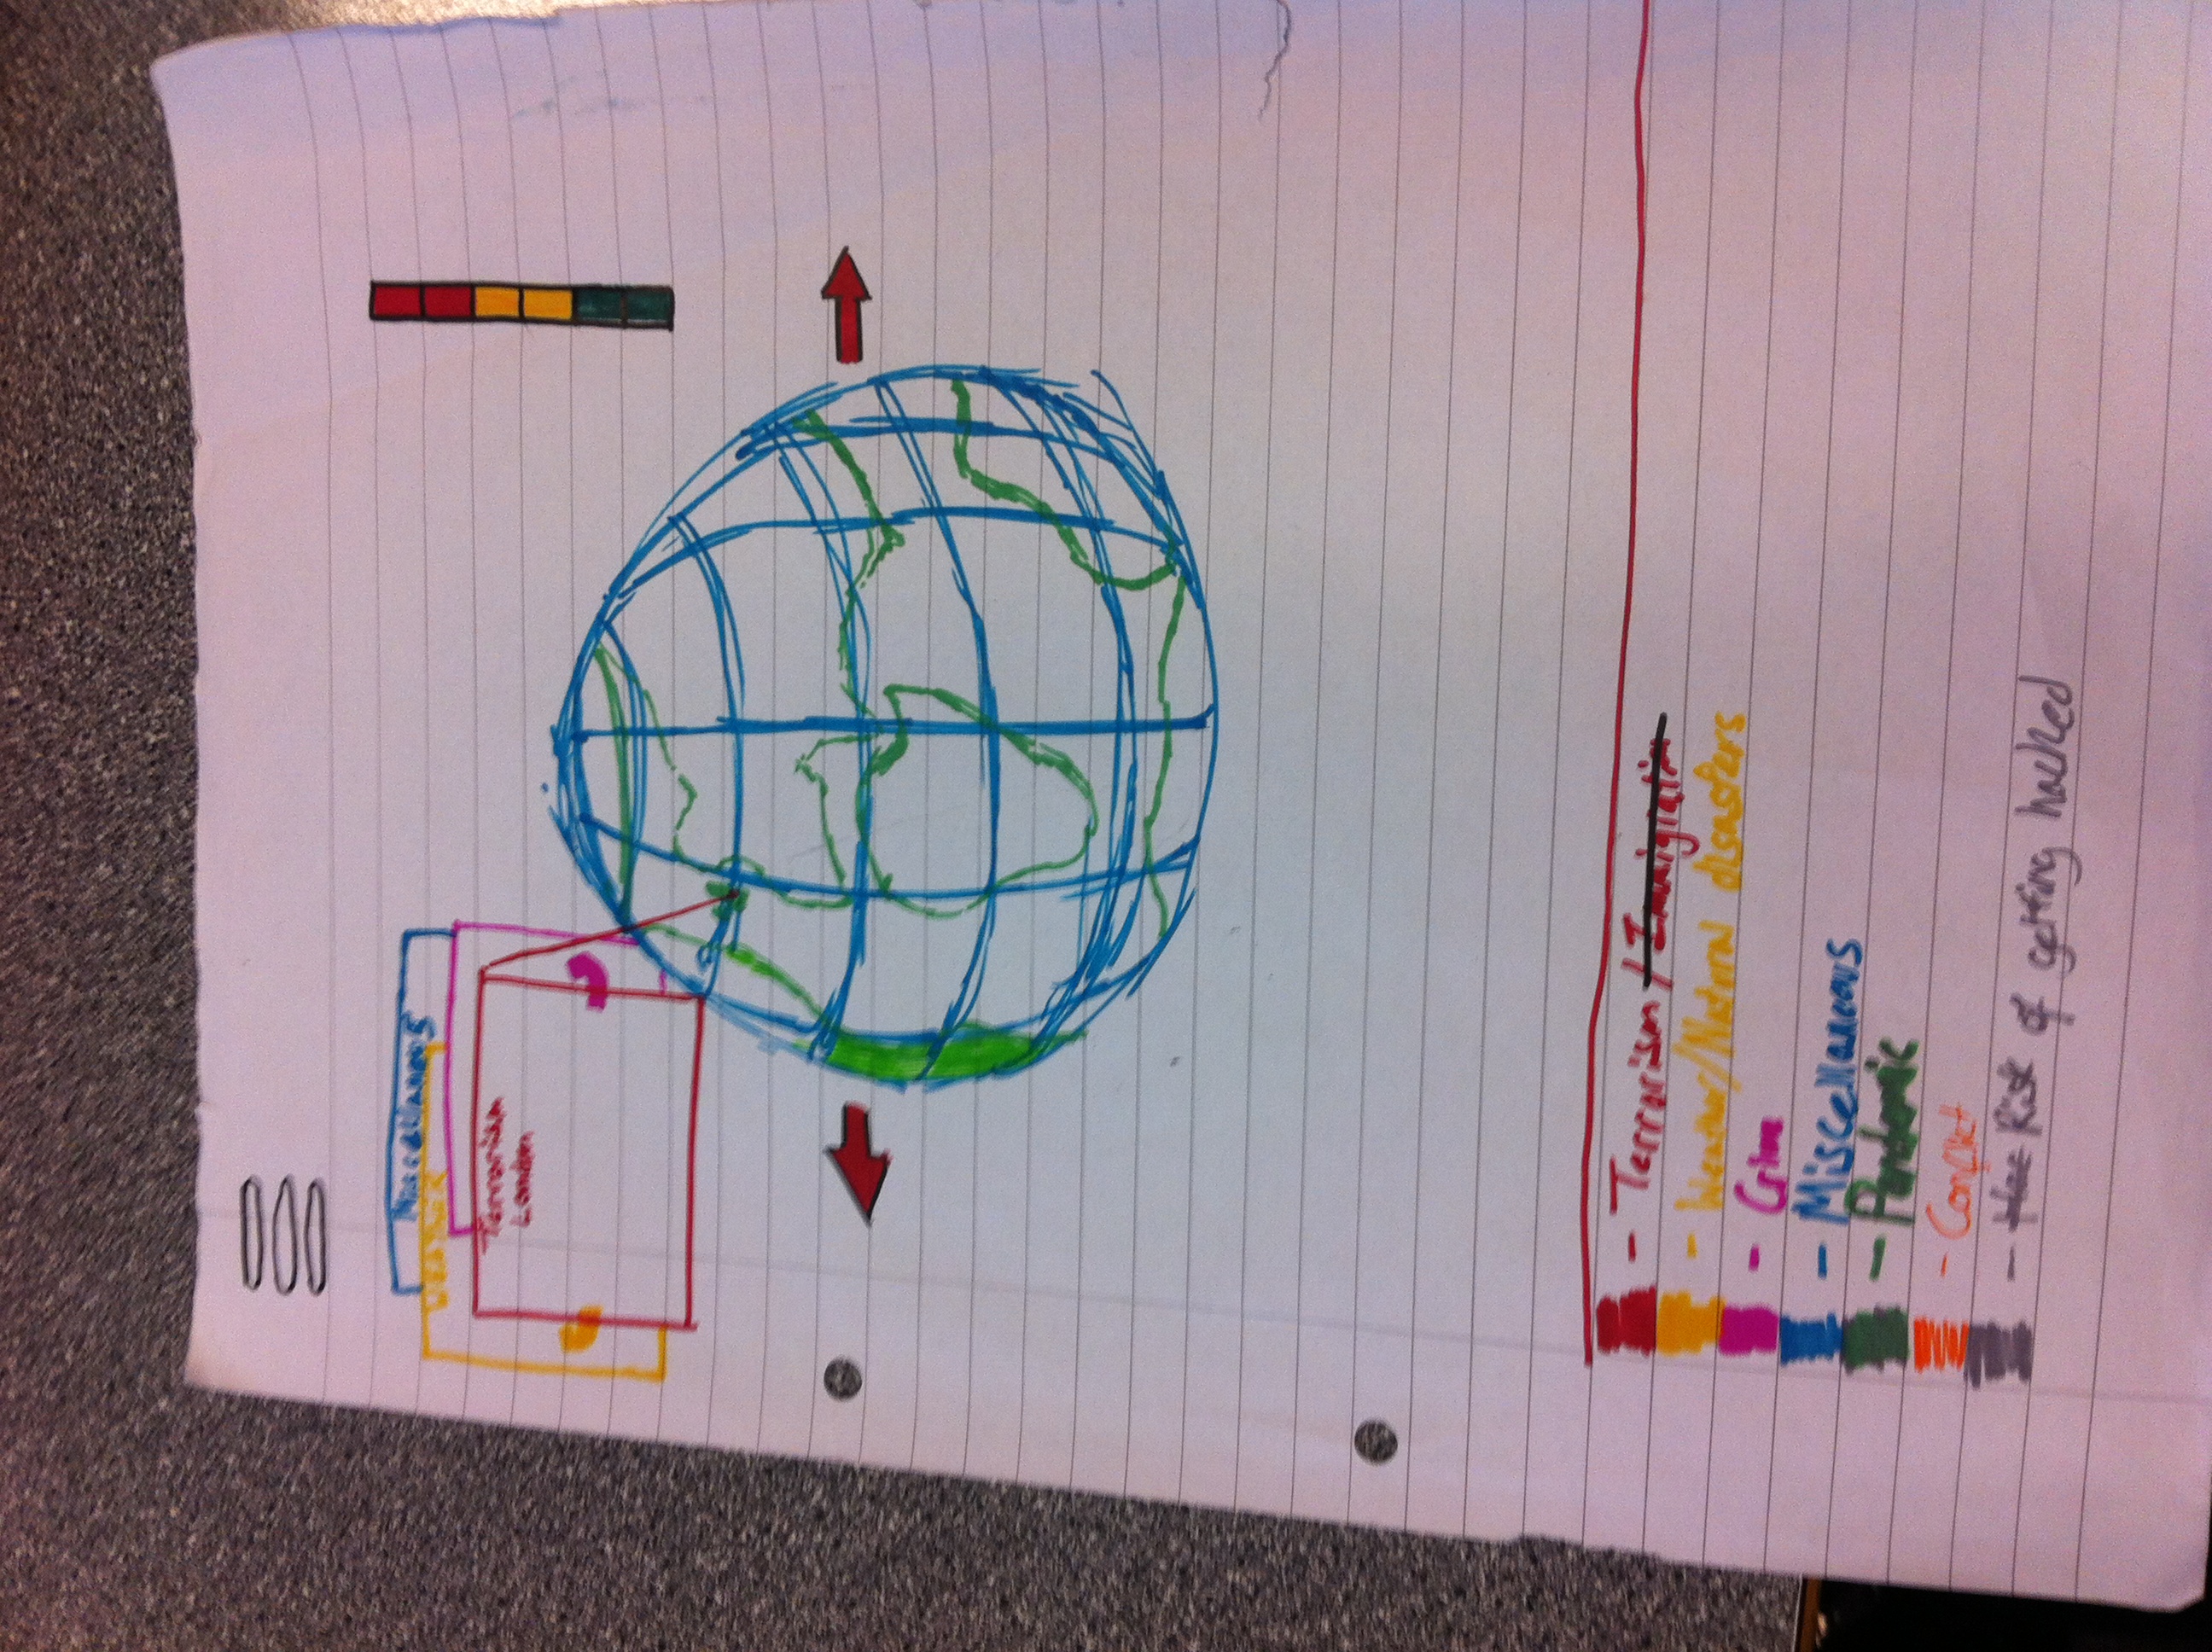 Miscellaneous
WEATHER
Terrorism
London
- Terrorism / Immigration
- Weather/Natural disasters
- Crime
- Miscellaneous
- Pandemic
- Conflict
- Risk of getting hacked